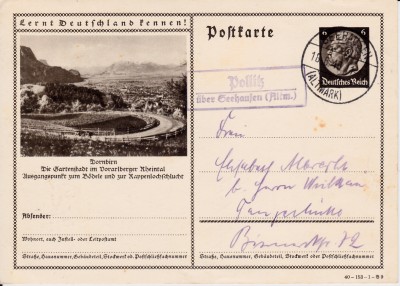 Lernt Deutschland kennen!
Postkarte
6 6
Deutsches Reich
(ALTMARK)
Pollitz
über Seehausen (Altm.)
Dornbirn
Die Gartenstadt im Vorarlberger Rheintal
Ausgangspunkt zum Bödele und zur Rappenlochschlucht
Absender:
Wohnort, auch Zustell- oder Leitpostamt
Straße, Hausnummer, Gebäudeteil, Stockwerk od. Postschließfachnummer
Frau
Elisabeth
b. Herrn
Tangerhütte
Bismarckstr. 72
Straße, Hausnummer, Gebäudeteil, Stockwerk oder Postschließfachnummer